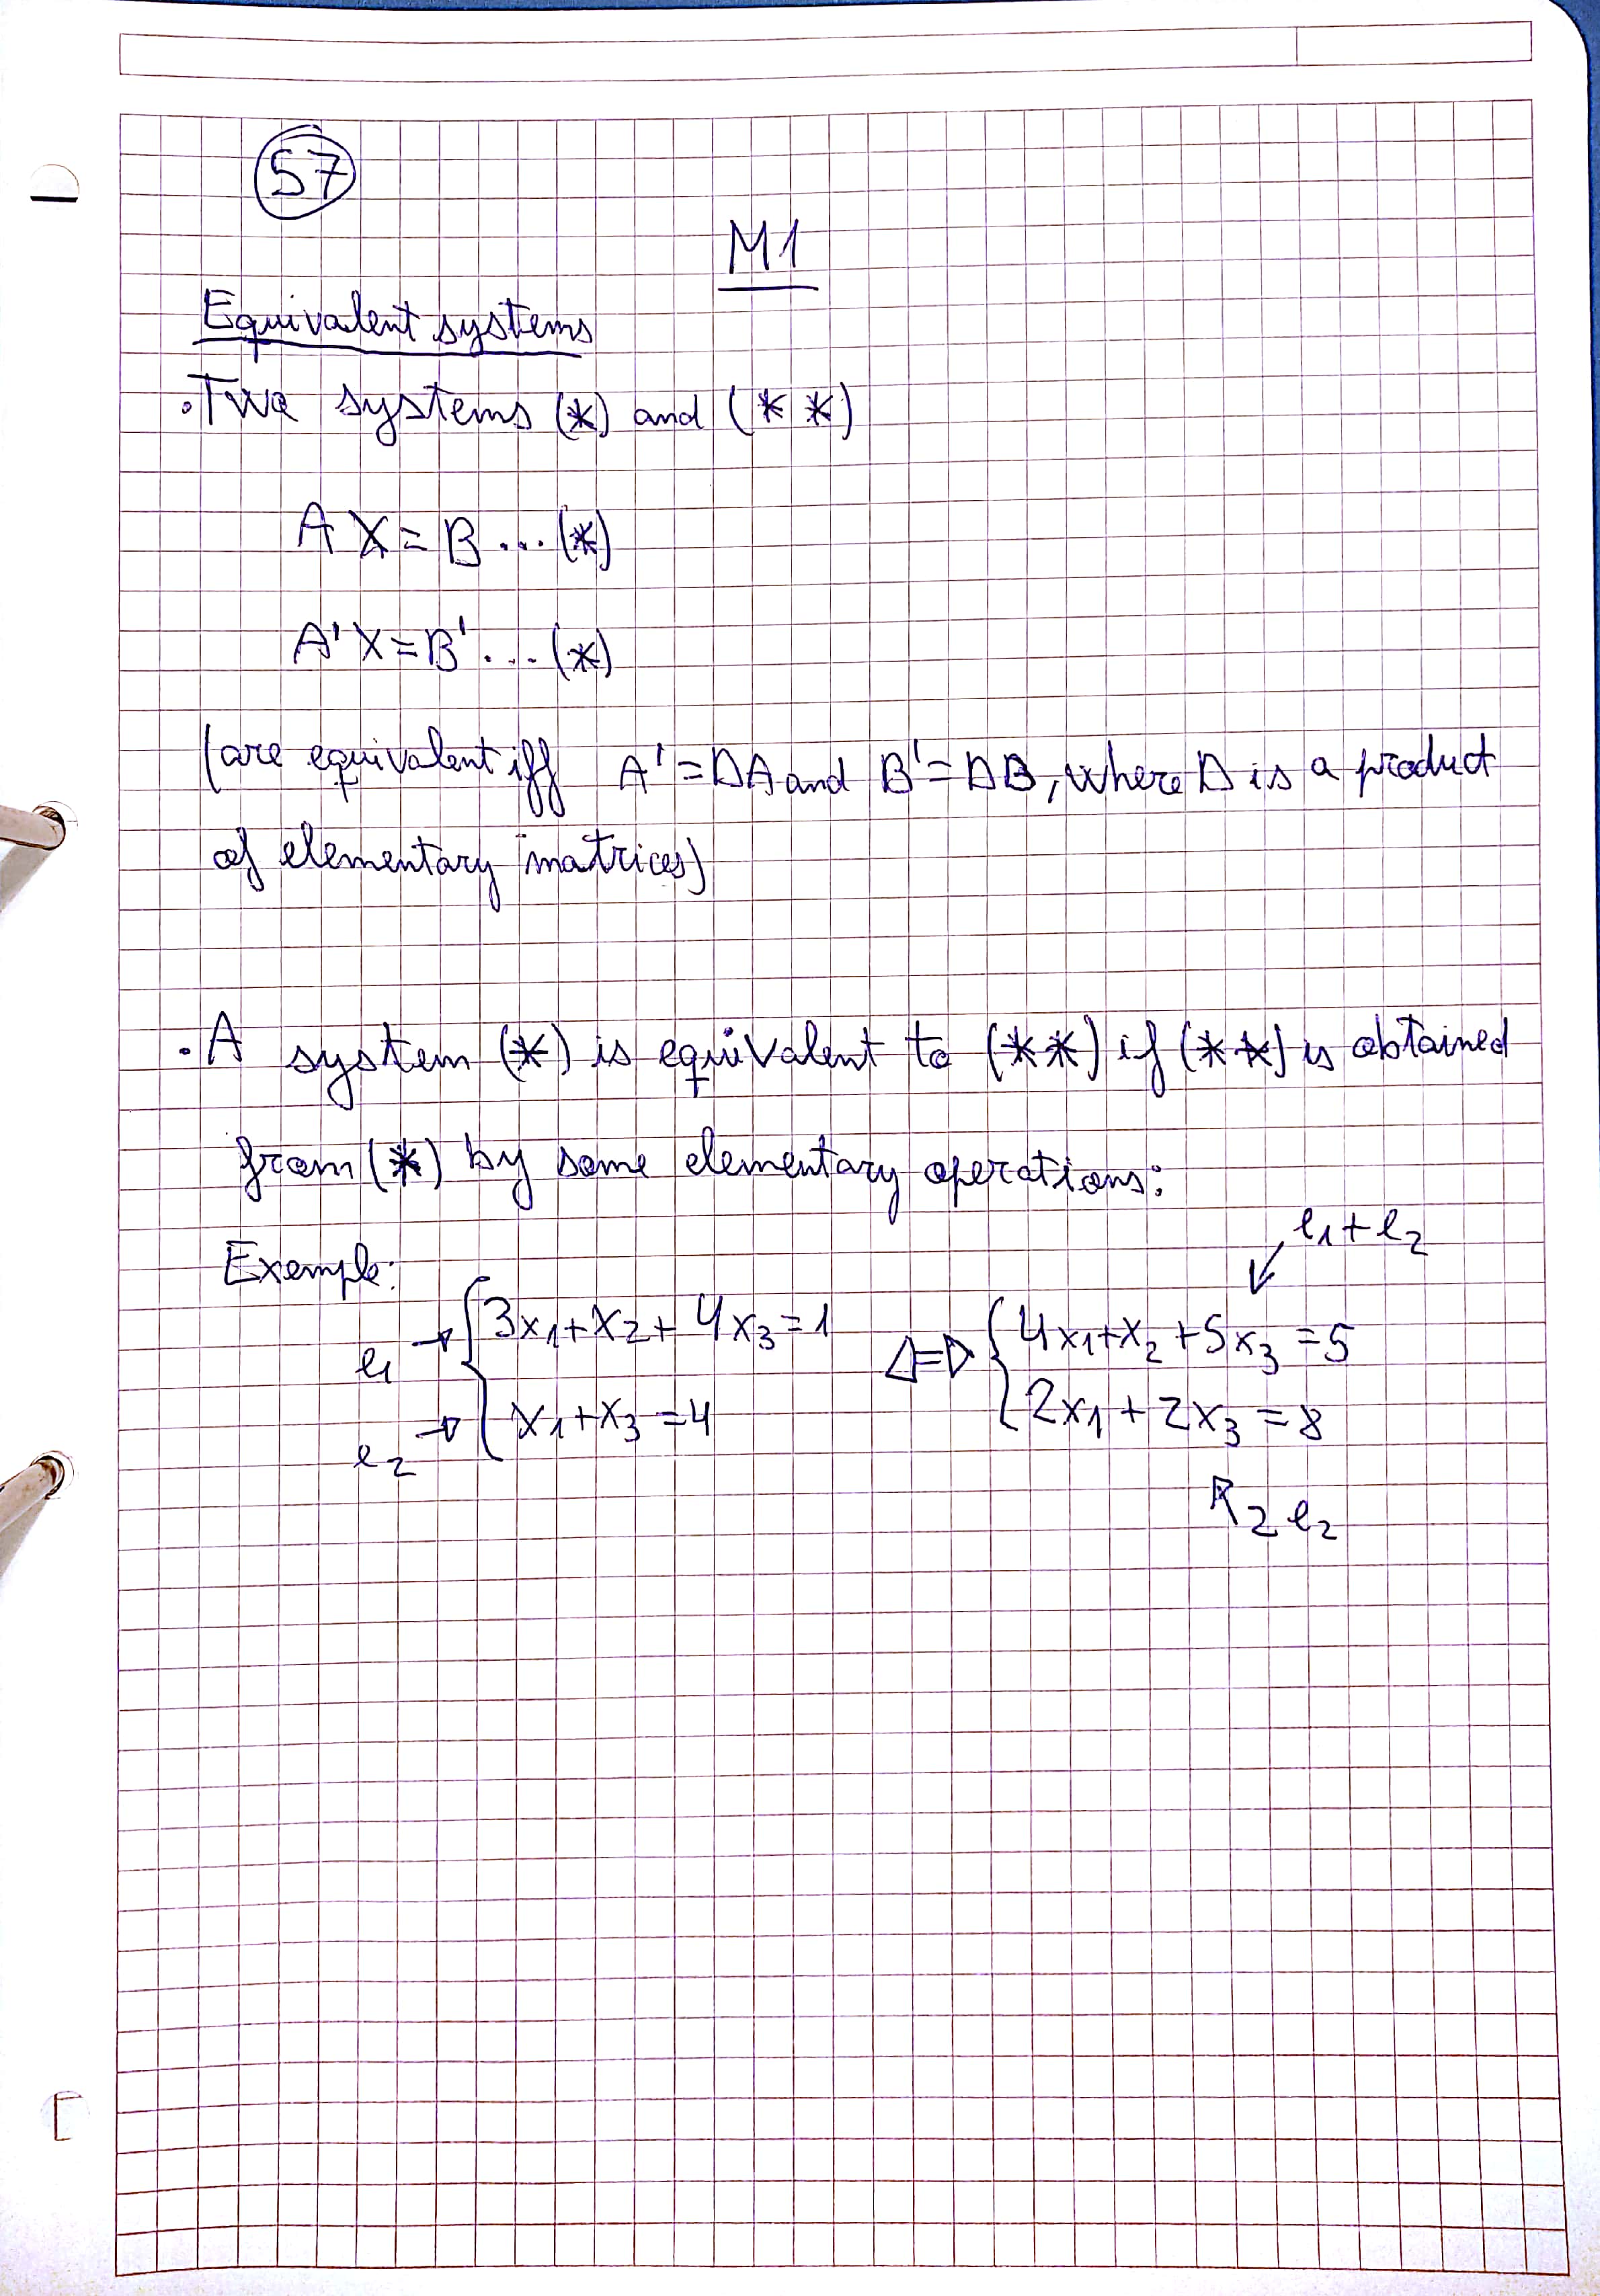 57
M1
Equivalent systems
• Two systems (*) and (* *)
A X = B ... (*)
A' X = B' ... (*)
(are equivalent iff A' = DA and B' = DB, where D is a product
of elementary matrices)
• A system (*) is equivalent to (* *) if (* *) is obtained
from (*) by some elementary operations:
l1 + l2
Exemple:
l1 → { 3x1 + x2 + 4x3 = 1 <=> { 4x1 + x2 + 5x3 = 5
l2 → x1 + x3 = 4 2x1 + 2x3 = 8
2 l2